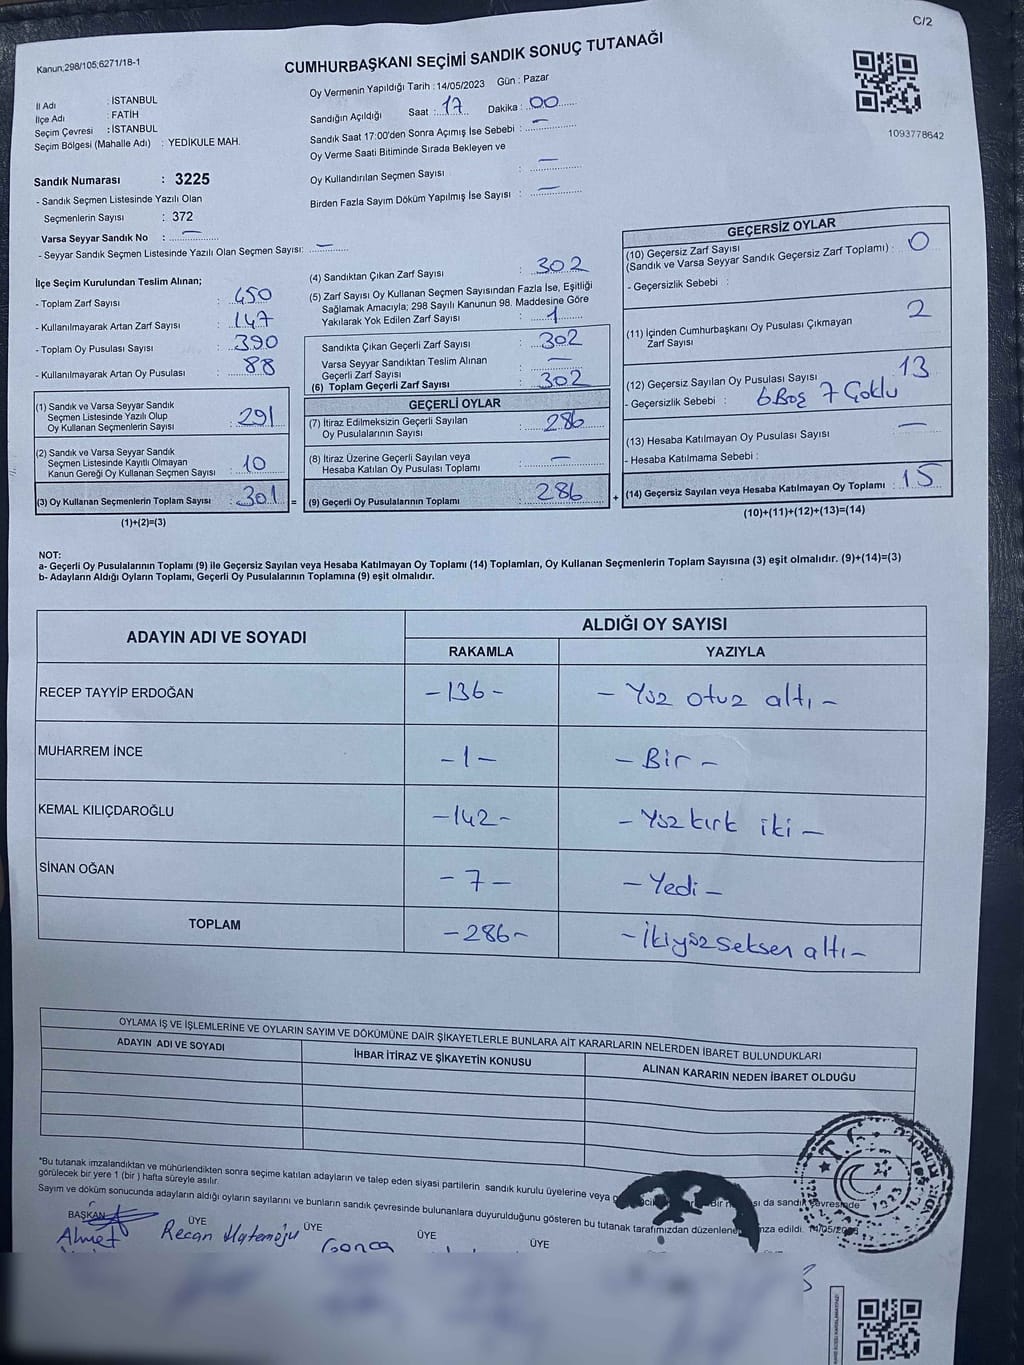 C/2
Kanun:298/105;6271/18-1
CUMHURBAŞKANI SEÇİMİ SANDIK SONUÇ TUTANAĞI
İl Adı : İSTANBUL
İlçe Adı : FATİH
Seçim Çevresi : İSTANBUL
Seçim Bölgesi (Mahalle Adı) : YEDİKULE MAH.
Oy Vermenin Yapıldığı Tarih : 14/05/2023 Gün : Pazar
Sandığın Açıldığı Saat : 17 Dakika : 00
Sandık Saat 17:00'den Sonra Açımış İse Sebebi : —
Oy Verme Saati Bitiminde Sırada Bekleyen ve
Oy Kullandırılan Seçmen Sayısı : —
Birden Fazla Sayım Döküm Yapılmış İse Sayısı : —
1093778642
Sandık Numarası : 3225
- Sandık Seçmen Listesinde Yazılı Olan
Seçmenlerin Sayısı : 372
Varsa Seyyar Sandık No : —
- Seyyar Sandık Seçmen Listesinde Yazılı Olan Seçmen Sayısı: —
İlçe Seçim Kurulundan Teslim Alınan;
- Toplam Zarf Sayısı : 450
- Kullanılmayarak Artan Zarf Sayısı : 147
- Toplam Oy Pusulası Sayısı : 390
- Kullanılmayarak Artan Oy Pusulası : 88
(1) Sandık ve Varsa Seyyar Sandık
Seçmen Listesinde Yazılı Olup
Oy Kullanan Seçmenlerin Sayısı : 291
(2) Sandık ve Varsa Seyyar Sandık
Seçmen Listesinde Kayıtlı Olmayan
Kanun Gereği Oy Kullanan Seçmen Sayısı : 10
(3) Oy Kullanan Seçmenlerin Toplam Sayısı : 301 =
(1)+(2)=(3)
(4) Sandıktan Çıkan Zarf Sayısı : 302
(5) Zarf Sayısı Oy Kullanan Seçmen Sayısından Fazla İse, Eşitliği
Sağlamak Amacıyla; 298 Sayılı Kanunun 98. Maddesine Göre
Yakılarak Yok Edilen Zarf Sayısı : 1
Sandıkta Çıkan Geçerli Zarf Sayısı : 302
Varsa Seyyar Sandıktan Teslim Alınan
Geçerli Zarf Sayısı : —
(6) Toplam Geçerli Zarf Sayısı : 302
GEÇERLİ OYLAR
(7) İtiraz Edilmeksizin Geçerli Sayılan
Oy Pusulalarının Sayısı : 286
(8) İtiraz Üzerine Geçerli Sayılan veya
Hesaba Katılan Oy Pusulası Toplamı : —
(9) Geçerli Oy Pusulalarının Toplamı : 286 +
GEÇERSİZ OYLAR
(10) Geçersiz Zarf Sayısı
(Sandık ve Varsa Seyyar Sandık Geçersiz Zarf Toplamı) : 0
- Geçersizlik Sebebi :
(11) İçinden Cumhurbaşkanı Oy Pusulası Çıkmayan
Zarf Sayısı : 2
(12) Geçersiz Sayılan Oy Pusulası Sayısı : 13
- Geçersizlik Sebebi : 6 Boş 7 Çoklu
(13) Hesaba Katılmayan Oy Pusulası Sayısı : —
- Hesaba Katılmama Sebebi :
(14) Geçersiz Sayılan veya Hesaba Katılmayan Oy Toplamı : 15
(10)+(11)+(12)+(13)=(14)
NOT:
a- Geçerli Oy Pusulalarının Toplamı (9) ile Geçersiz Sayılan veya Hesaba Katılmayan Oy Toplamı (14) Toplamları, Oy Kullanan Seçmenlerin Toplam Sayısına (3) eşit olmalıdır. (9)+(14)=(3)
b- Adayların Aldığı Oyların Toplamı, Geçerli Oy Pusulalarının Toplamına (9) eşit olmalıdır.
ADAYIN ADI VE SOYADI
ALDIĞI OY SAYISI
RAKAMLA YAZIYLA
RECEP TAYYİP ERDOĞAN -136- - Yüz otuz altı -
MUHARREM İNCE -1- - Bir -
KEMAL KILIÇDAROĞLU -142- - Yüz kırk iki -
SİNAN OĞAN -7- - Yedi -
TOPLAM -286- - İkiyüz seksen altı -
OYLAMA İŞ VE İŞLEMLERİNE VE OYLARIN SAYIM VE DÖKÜMÜNE DAİR ŞİKAYETLERLE BUNLARA AİT KARARLARIN NELERDEN İBARET BULUNDUKLARI
ADAYIN ADI VE SOYADI İHBAR İTİRAZ VE ŞİKAYETİN KONUSU ALINAN KARARIN NEDEN İBARET OLDUĞU
*Bu tutanak imzalandıktan ve mühürlendikten sonra seçime katılan adayların ve talep eden siyasi partilerin sandık kurulu üyelerine veya
görülecek bir yere 1 (bir ) hafta süreyle asılır.
Sayım ve döküm sonucunda adayların aldığı oyların sayılarını ve bunların sandık çevresinde bulunanlara duyurulduğunu gösteren bu tutanak tarafımızdan
BAŞKAN ÜYE ÜYE ÜYE ÜYE
Ahmet Recan Gonca